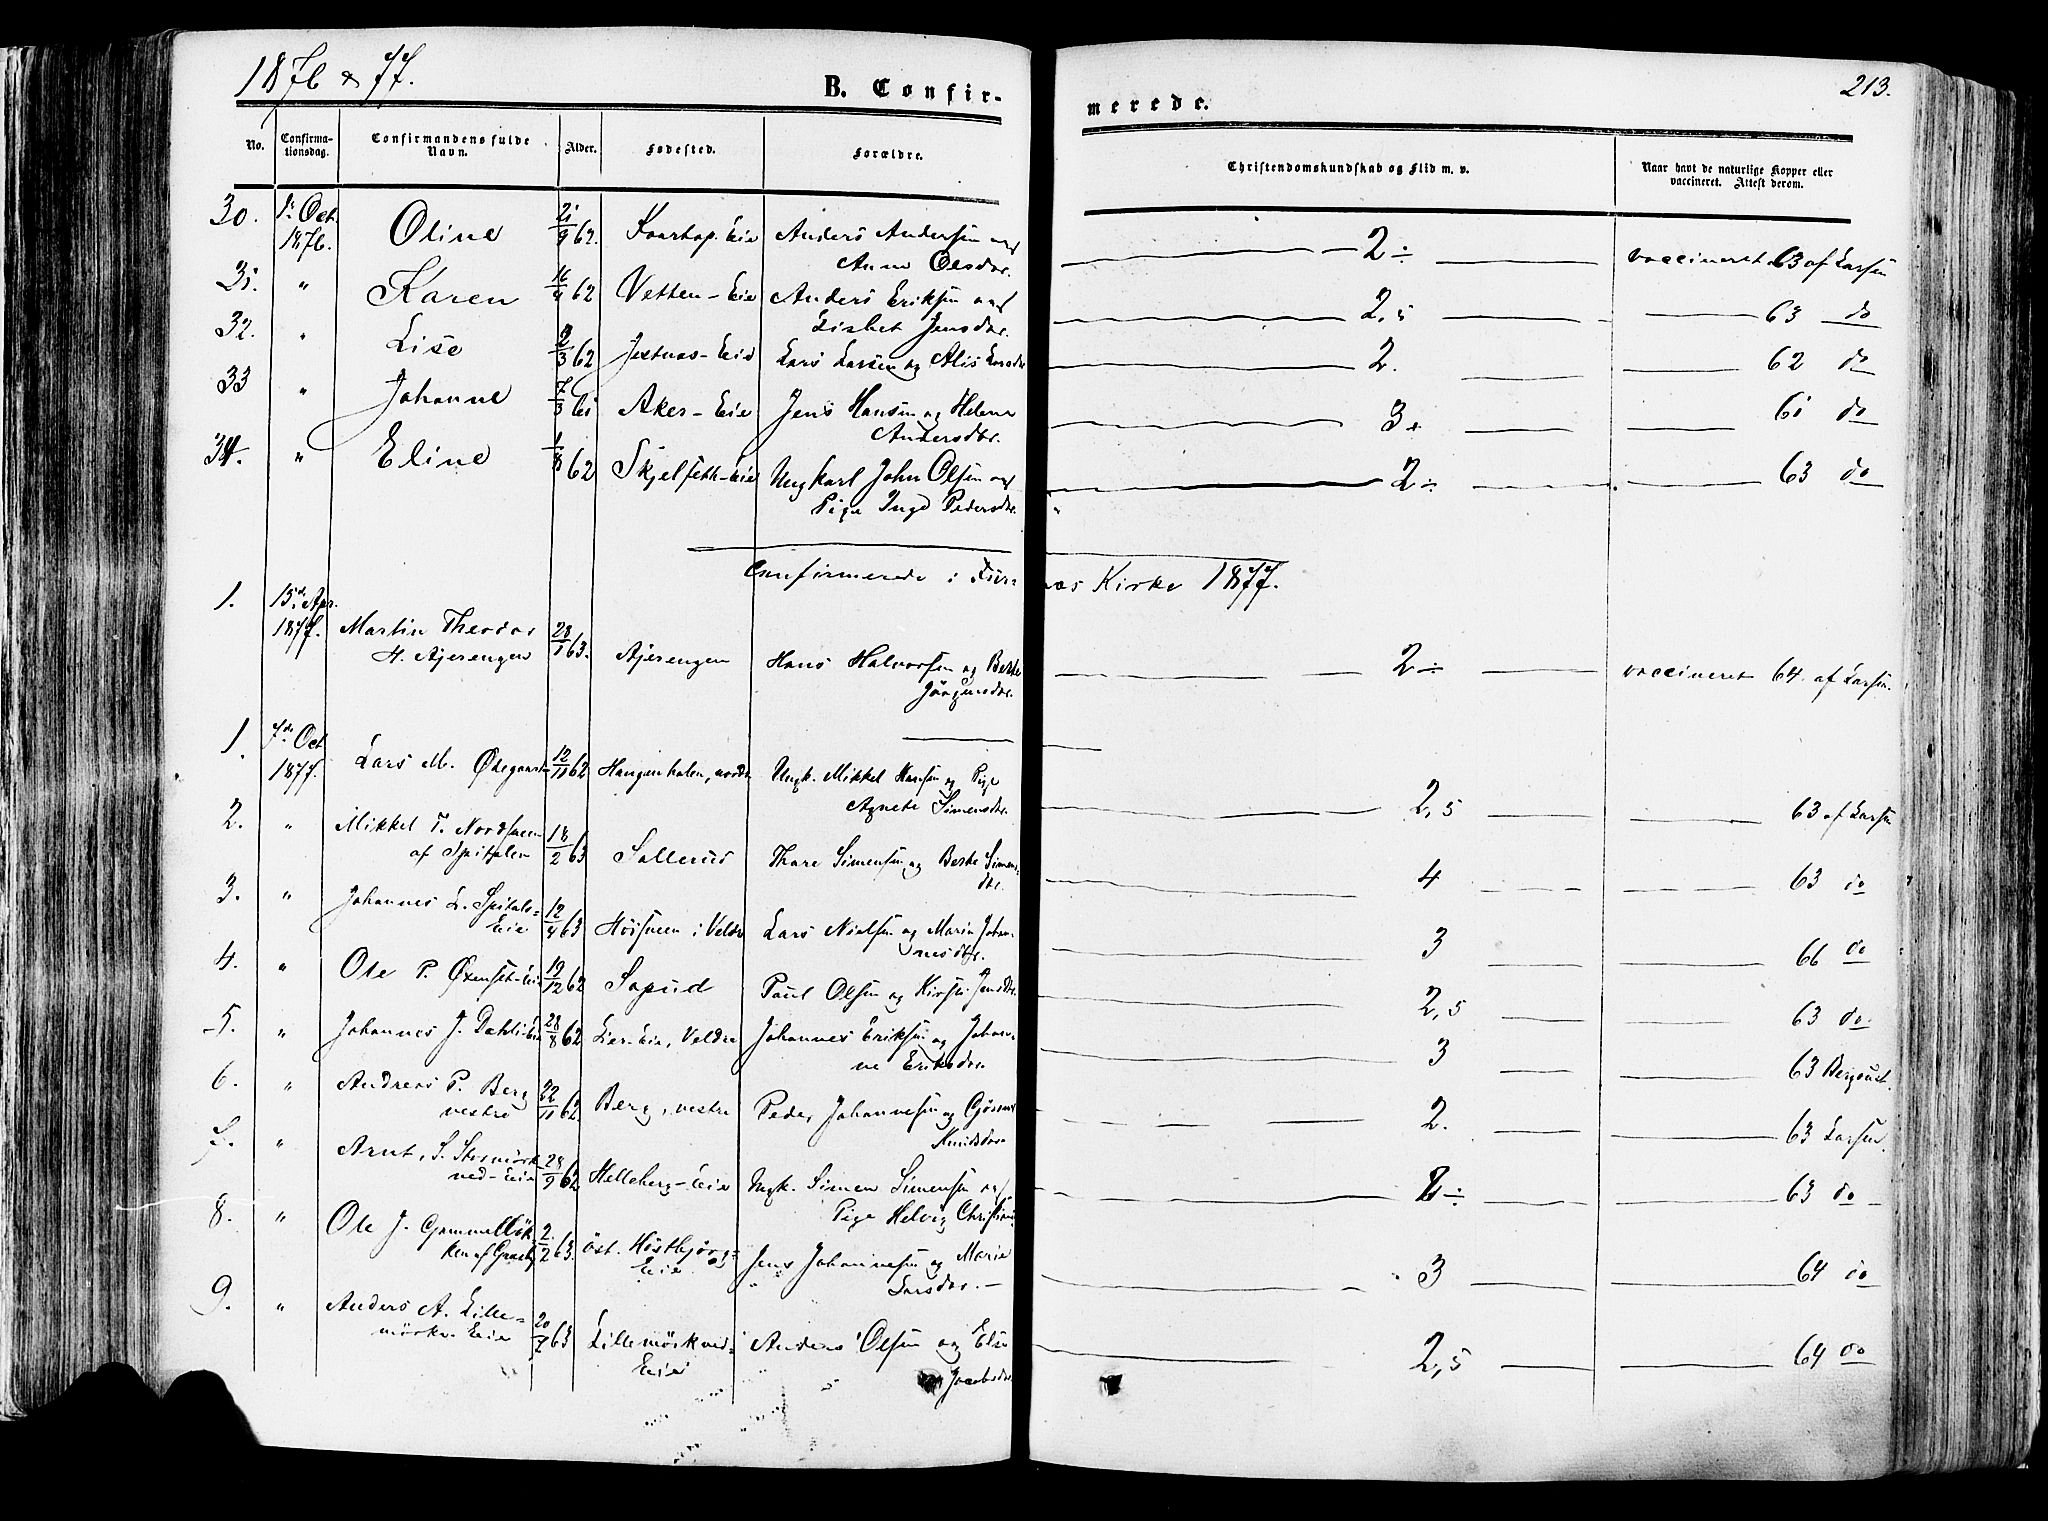 1876 & 77.
B. Confir-
merede.
213.
No.
Confirma-
tionsdag.
Confirmandens fulde
Navn.
Alder.
Fødested.
Forældre.
Christendomskundskab og Flid m. v.
Naar havt de naturlige Kopper eller
vaccineret. Attest derom.
30. 1. Oct. 1876. Oline 21/9 62. Eie Anders Andersen og
Anne Olsdtr. 2÷ vaccineret 63 af Larsen
31. " Karen 16/4 62 Vetten-Eie Anders Eriksen og
Lisbet Jensdtr. 2,5 63 do
32. " Lise 2/3 62 Jestnæs-Eie Lars Larsen og Alis Larsdtr 2. 62 do
33 " Johanne 7/3 61 Aker-Eie Jens Hansen og Helene
Andersdtr. 3+ 61 do
34. " Eline 1/8 62 Skjelseth-Eie Ungkarl John Olsen og
Pige Inge Pedersdtr. 2÷ 63 do
Confirmerede i Furnæs Kirke 1877.
1. 15d. Apr. 1877. Martin Theodor
H. Ajerengen 28/1 63. Ajerengen Hans Halvorsen og Berte
Jörgensdtr. 2÷ vaccineret 64 af Larsen.
1. 7de Oct 1877. Lars M. Ødegaard 12/11 62 Haugenholen, nordre Ungk. Mikkel Hansen og Pige
Agnete Simensdtr. 2,5 63 af Larsen
2. " Mikkel T. Nordsveen
af Spitalen 18/2 63 Sollerud Thore Simensen og Berte Simens-
dtr. 4 63 do
3. " Johannes L. Spitals-
Eie 12/4 63 Höisveen i Veldre Lars Nielsen og Marie Johan-
nesdtr. 3 66 do
4. " Ole P. Øxenset-Eie 19/12 62 Sopud Paul Olsen og Kirsti Jensdtr. 2,5 63 do.
5. " Johannes J. Dæhli-Eie 28/8 62 Lier-Eie, Veldre Johannes Eriksen og Johan-
ne Eriksdtr. 3 63 Bergqust.
6. " Andreas P. Berg
vestre 22/11 62. Berg, vestre Peder Johannesen og
Knudsdtr 2. 63 Larsen.
7. " Arnt S. Stormörk-
ved-Eie 28/9 62 Helleberg-Eie Ungk. Simen Simensen og
Pige Helvig 2÷ 63 do
8. " Ole J. Gammelløk-
ken af 2/2 63. öst. Höstbjørg-
Eie Jens Johannesen og Marie
Larsdtr. 3 64 do
9. " Anders A. Lille-
mörkv. Eie 20/7 63 Lillemörkved-
Eie Anders Olsen og Else
Jacobsdtr. 2,5 64 do